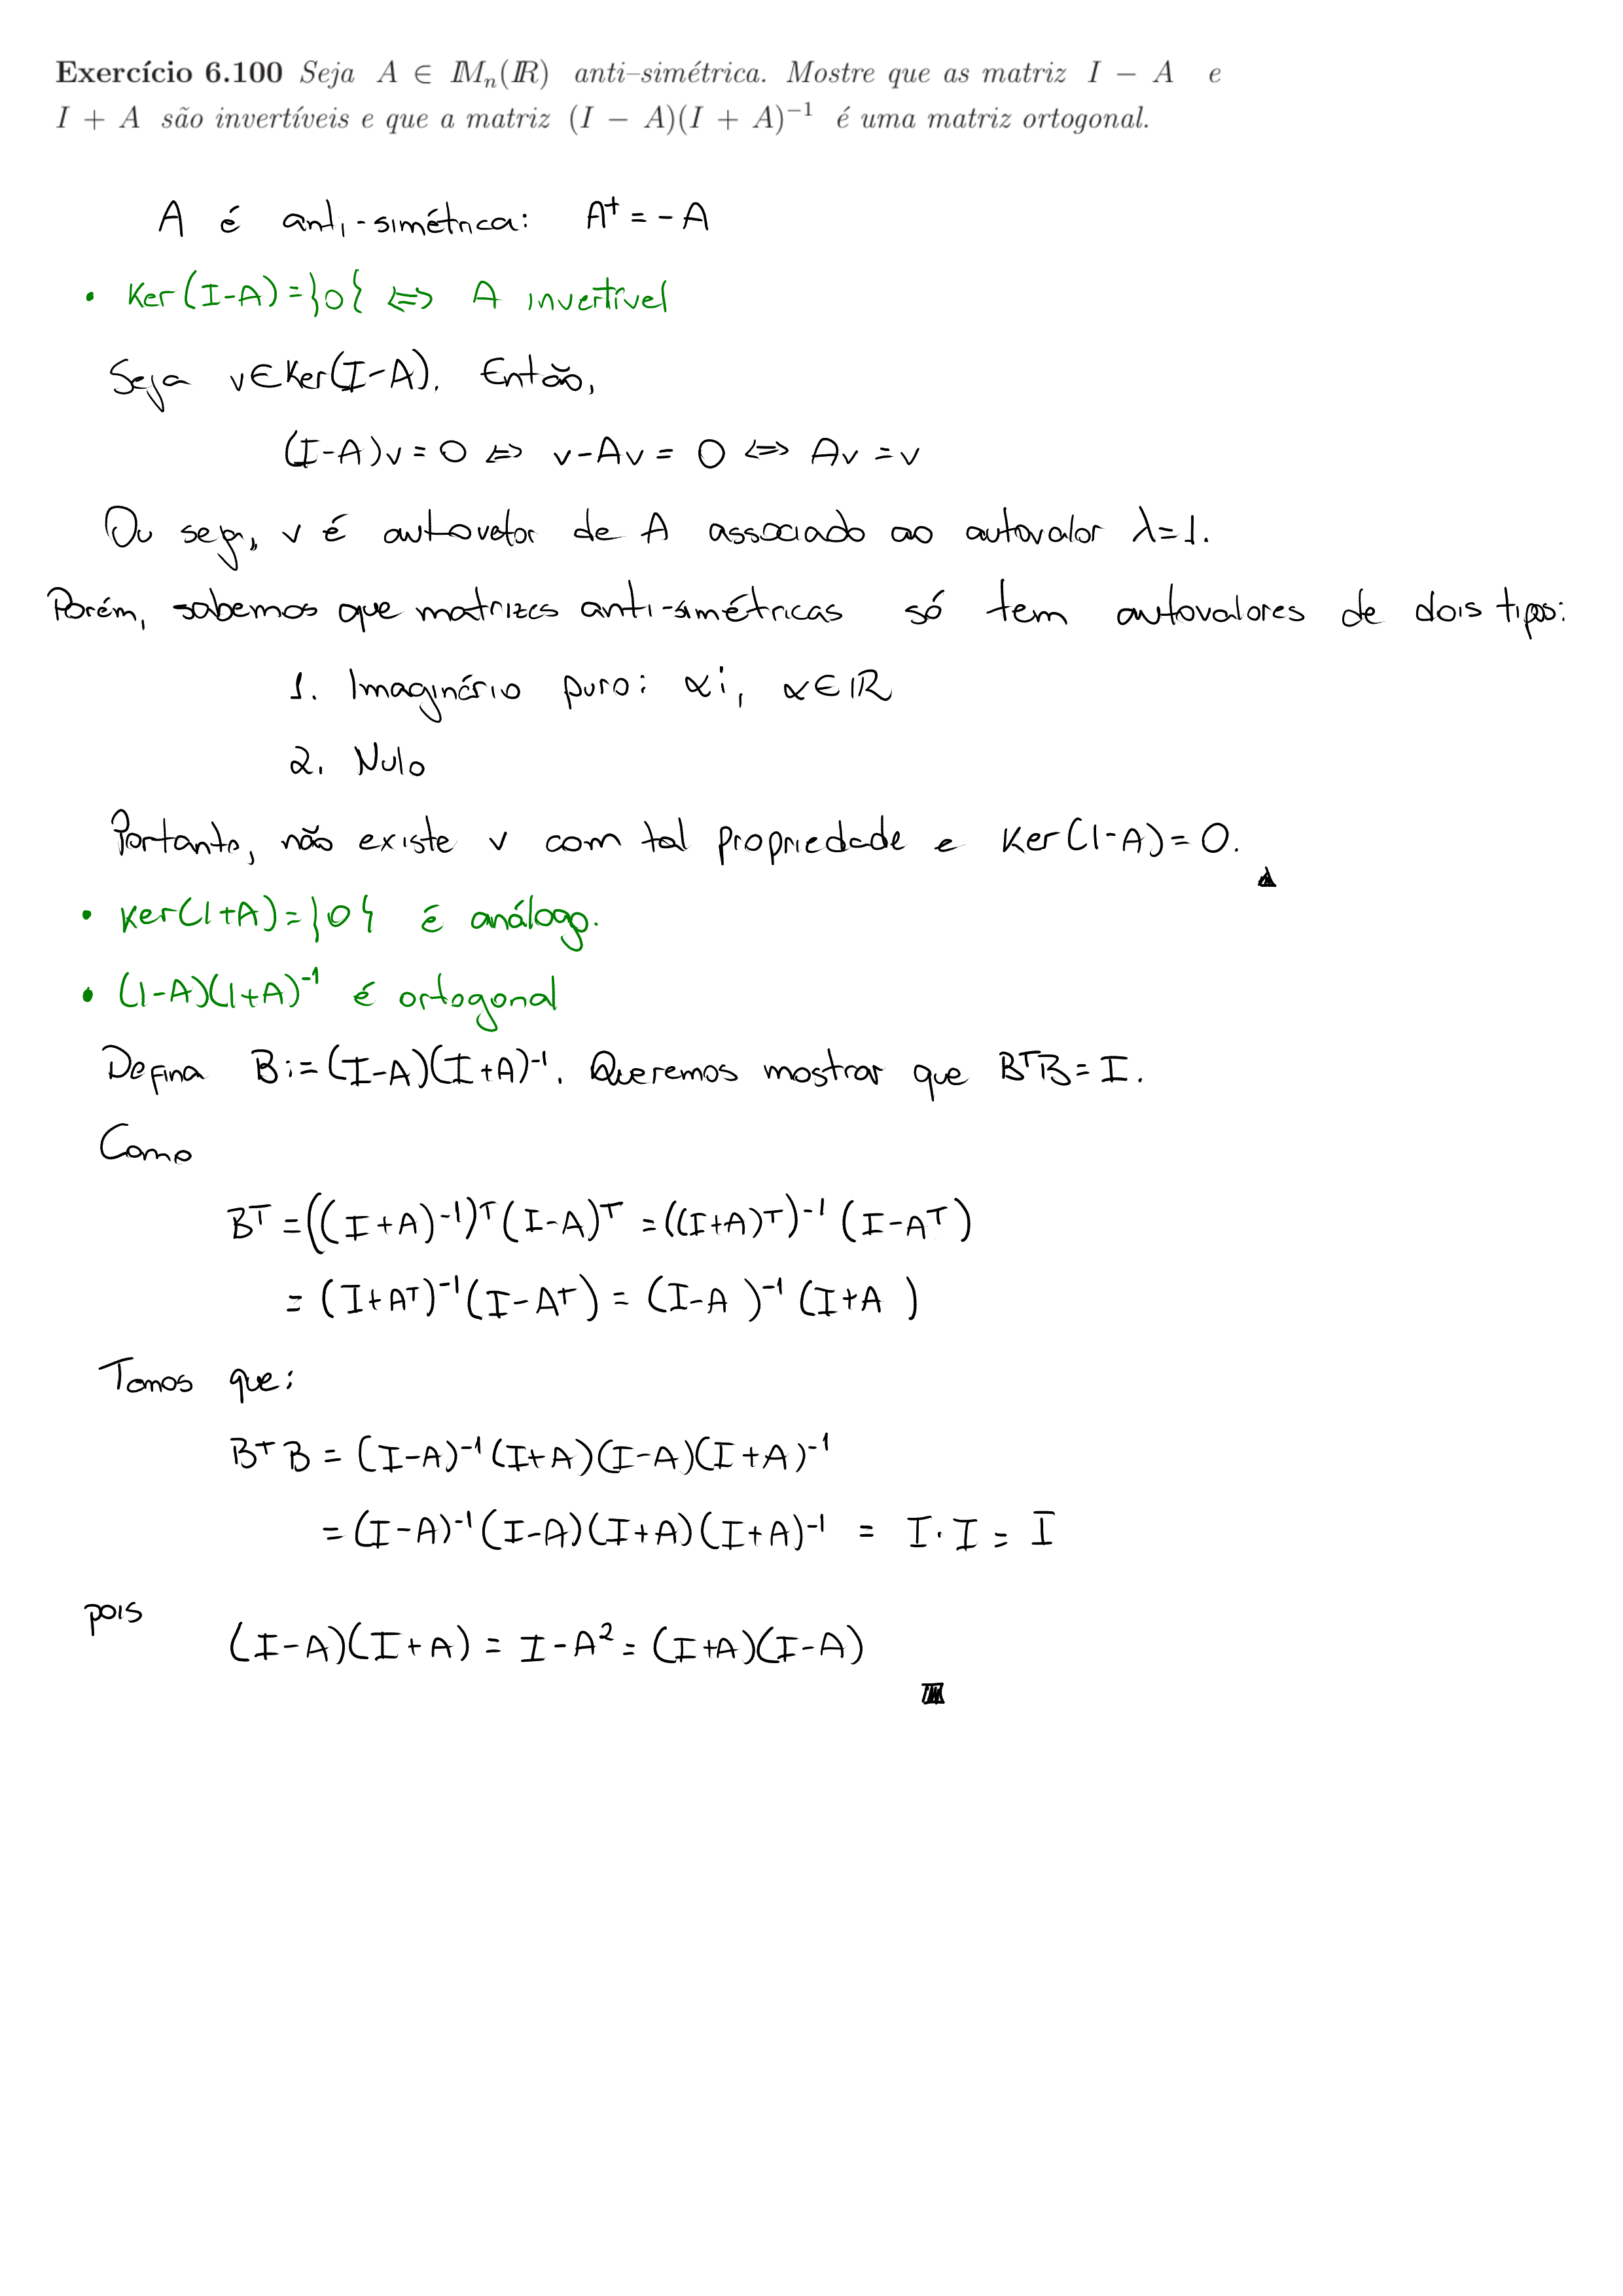 Exercício 6.100 Seja A ∈ 𝑀ₙ(ℝ) anti–simétrica. Mostre que as matriz I − A e
I + A são invertíveis e que a matriz (I − A)(I + A)⁻¹ é uma matriz ortogonal.
A é anti-simétrica: Aᵗ = -A
• Ker(I-A)=}0{ ⇔ A invertível
Seja v∈Ker(I-A). Então,
(I-A)v = 0 ⇔ v-Av = 0 ⇔ Av = v
Ou seja, v é autovetor de A associado ao autovalor λ=1.
Porém, sabemos que matrizes anti-simétricas só tem autovalores de dois tipos:
1. Imaginário puro: αi, α∈ℝ
2. Nulo
Portanto, não existe v com tal propriedade e Ker(I-A)=0.
• Ker(I+A)=}0{ é análogo.
• (I-A)(I+A)⁻¹ é ortogonal
Defina B:=(I-A)(I+A)⁻¹. Queremos mostrar que BᵀB=I.
Como
Bᵀ = ((I+A)⁻¹)ᵀ(I-A)ᵀ = ((I+A)ᵀ)⁻¹(I-Aᵀ)
= (I+Aᵀ)⁻¹(I-Aᵀ) = (I-A)⁻¹(I+A)
Temos que:
BᵀB = (I-A)⁻¹(I+A)(I-A)(I+A)⁻¹
= (I-A)⁻¹(I-A)(I+A)(I+A)⁻¹ = I·I = I
pois
(I-A)(I+A) = I-A² = (I+A)(I-A)